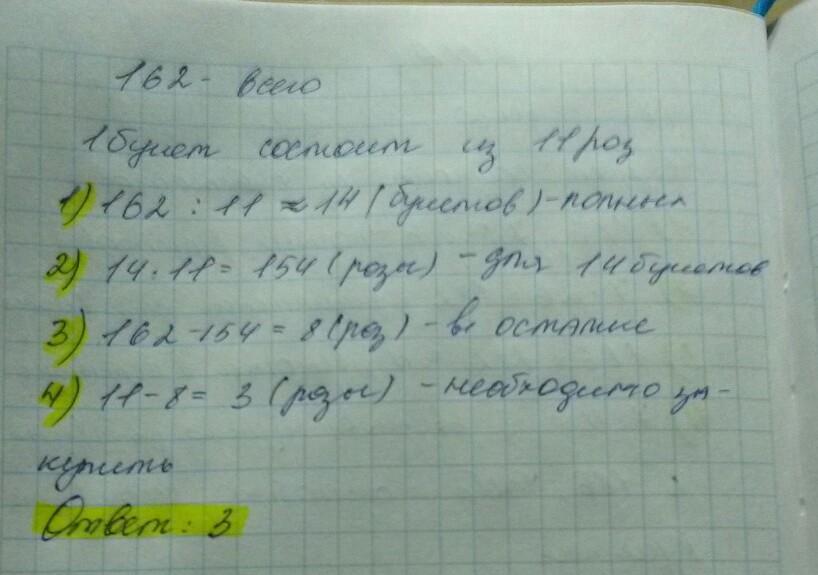 162 - всего
1 букет состоит из 11 роз
1) 162 : 11 ≈ 14 (букетов) - полных
2) 14 · 11 = 154 (розы) - для 14 букетов
3) 162 - 154 = 8 (роз) - в остатке
4) 11 - 8 = 3 (розы) - необходимо за-
купить
Ответ: 3